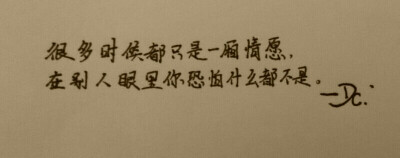 很多时候都只是一厢情愿，
在别人眼里你恐怕什么都不是。
—Dc.